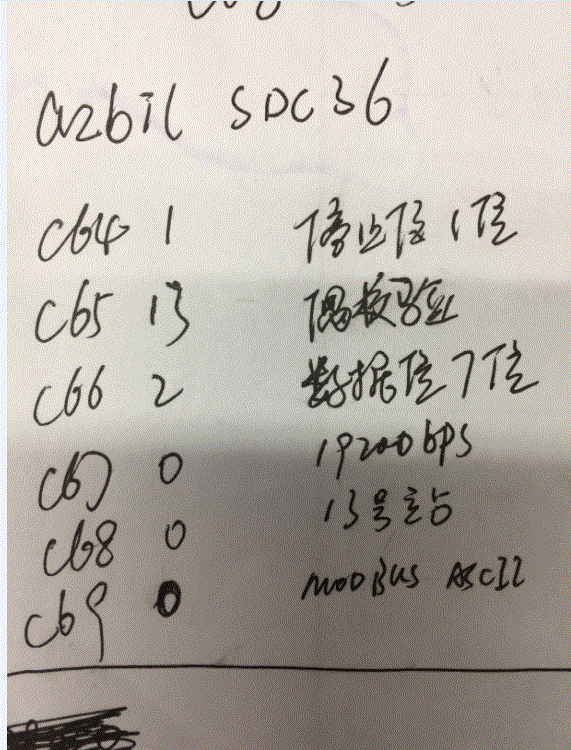 azbil SDC36
C64 1 停止位1位
C65 13 偶校验
C66 2 数据位7位
C67 0 19200bps
C68 0 13号主站
C69 0 MODBUS ASCII